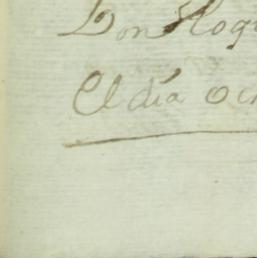 Don Roq
El día oc